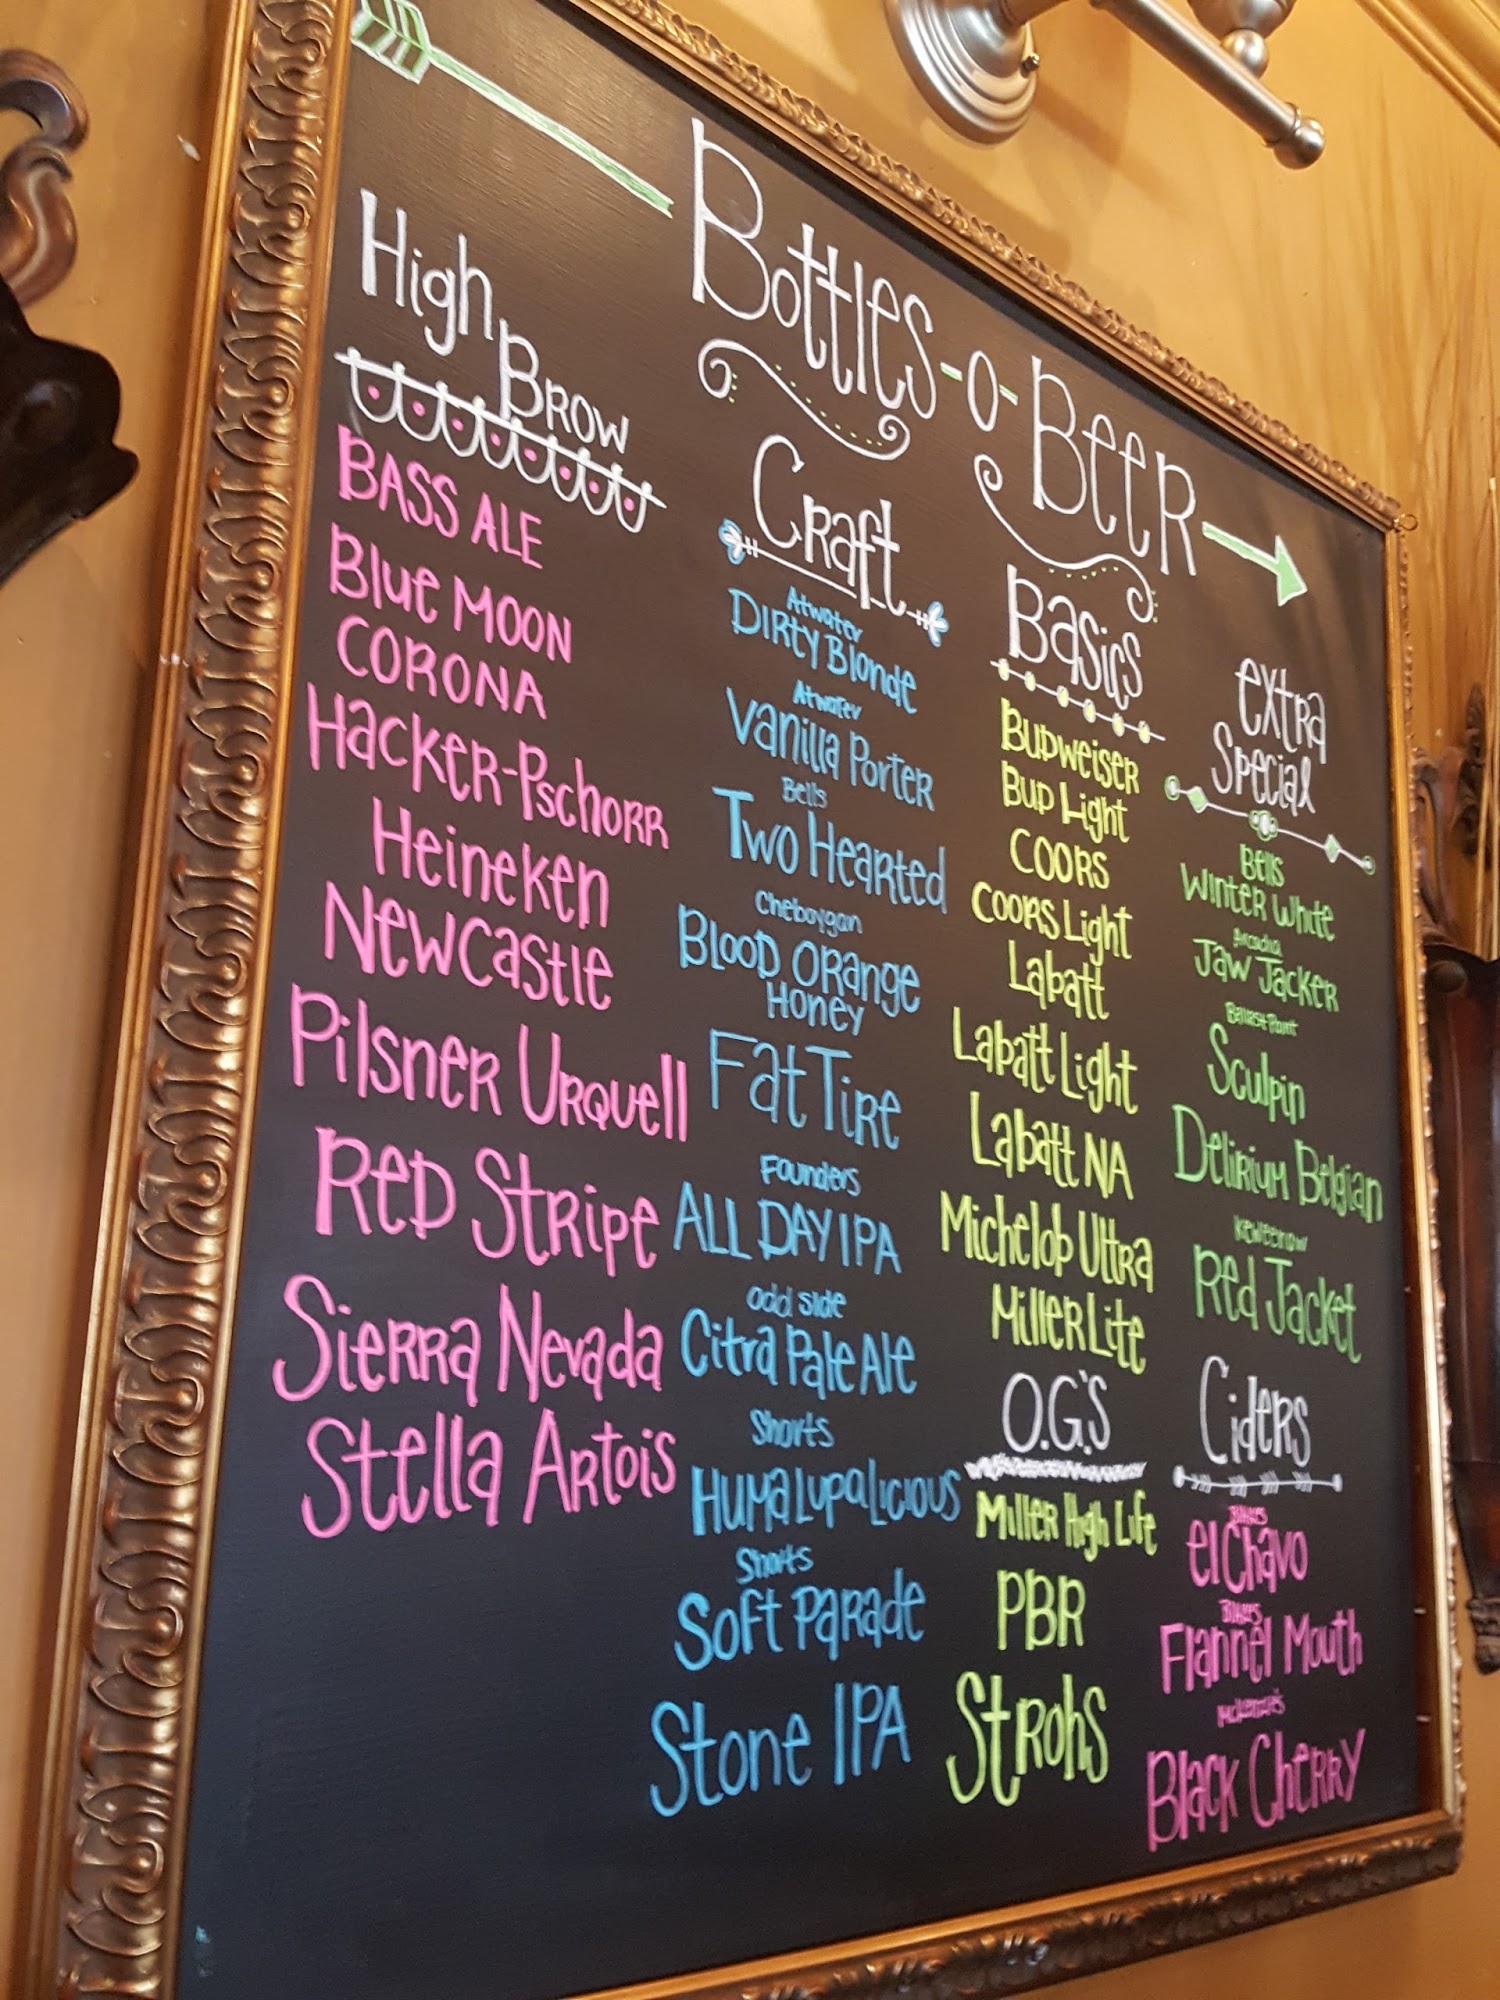 Bottles-o-Beer
High Brow
BASS ALE
Blue MOON
CORONA
Hacker-Pschorr
Heineken
Newcastle
Pilsner Urquell
Red Stripe
Sierra Nevada
Stella Artois
Craft
Atwater
Dirty Blonde
Atwater
Vanilla Porter
Bells
Two Hearted
Cheboygan
Blood Orange
Honey
Fat Tire
Founders
ALL DAY IPA
Odd Side
Citra Pale Ale
Shorts
Humalupalicious
Shorts
Soft Parade
Stone IPA
Basics
Budweiser
Bud Light
COORS
COORS Light
Labatt
Labatt Light
Labatt NA
Michelob Ultra
Miller Lite
O.G.'S
Miller High Life
PBR
Strohs
extra
Special
Bells
Winter White
Arcadia
Jaw Jacker
Ballast Point
Sculpin
Delirium Belgian
Keweenaw
Red Jacket
Ciders
Blakes
el Chavo
Blakes
Flannel Mouth
McKenzie's
Black Cherry